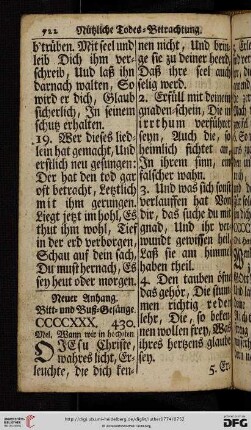 922 Nützliche Todes-Betrachtung.
btrüben. Mit seel und
leib Dich ihm ver-
schreib, Und laß ihn
darnach walten, So
wird er dich, Glaub
sicherlich, In seinem
schutz erhalten.
19. Wer dieses lied-
lein hat gemacht, Und
erstlich neu gesungen:
Der hat den tod gar
oft betracht, Letztlich
mit ihm gerungen.
Liegt jetzt im hohl, Es
thut ihm wohl, Tief
in der erd verborgen,
Schau auf dein sach,
Du must hernach, Es
sey heut oder morgen.
Neuer Anhang.
Bitt- und Buß-Gesänge.
CCCCXXX. 430.
Mel. Wann wir in höchsten
O JEsu Christe,
wahres licht, Er-
leuchte, die dich ken-
nen nicht, Und brin-
ge sie zu deiner heerd,
Daß ihre seel auch
selig werd.
2. Erfüll mit deinem
gnaden-schein, Die in
irrthum verführt
seyn, Auch die, so
heimlich fichtet an,
In ihrem sinn, ein
falscher wahn.
3. Und was sich sonst
verlauffen hat Von
dir, das suche du mit
gnad, Und ihr ver-
wundt gewissen heil,
Laß sie am himmel
haben theil.
4. Den tauben öfne
das gehör, Der stum-
men richtig reden
lehr, Die, so beken-
nen wollen frey, Was
ihres hertzens glaube
sey.
5. Er-